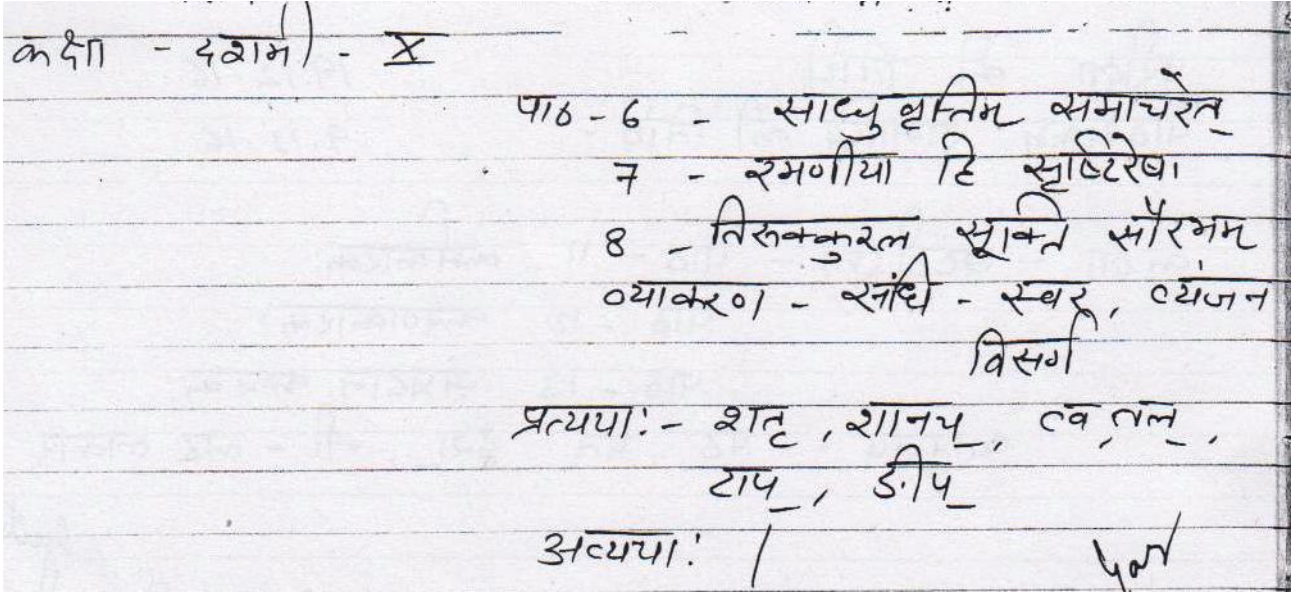 कक्षा - दशमी - X
पाठ - 6 - साधु वृत्तिम् समाचरेत्
7 - रमणीया हि सृष्टिरेषा
8 - तिरुक्कुरल सूक्ति सौरभम्
व्याकरण - संधि - स्वर, व्यंजन
विसर्ग
प्रत्यया:- शतृ, शानच्, त्व, तल्,
टाप्, ङीप्
अव्यया: |